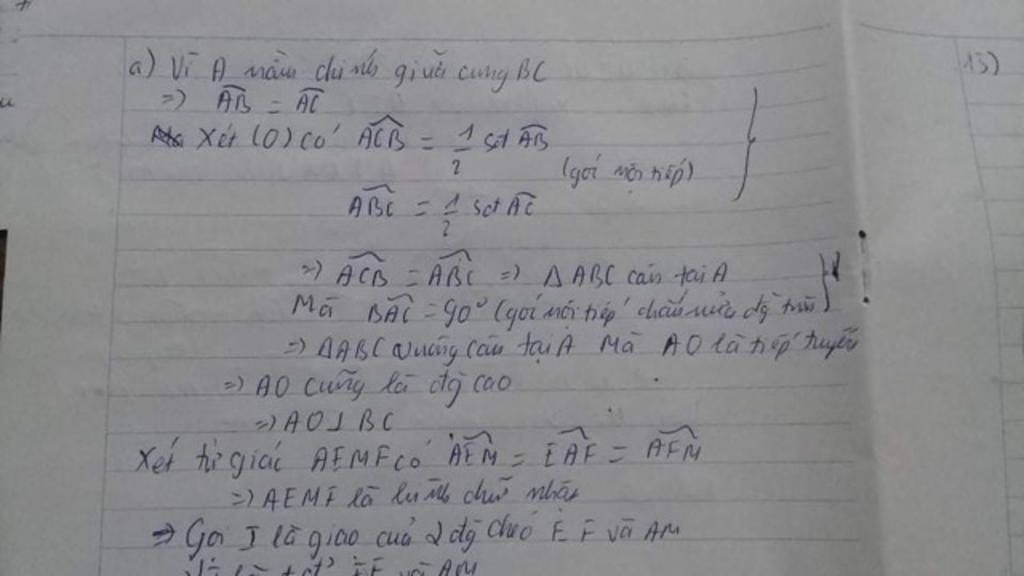 13)
a) Vì A nằm chính giữa cung BC
=> AB = AC
Xét (O) có ACB = 1/2 sđ AB
(góc nội tiếp)
ABC = 1/2 sđ AC
=> ACB = ABC => Δ ABC cân tại A
Mà BAC = 90° (góc nội tiếp chắn nửa đg tròn)
=> ΔABC vuông cân tại A Mà AO là tiếp tuyến
=> AO cũng là đg cao
=> AO ⊥ BC
Xét tứ giác AEMF có AEM = EAF = AFM
=> AEMF là hình chữ nhật
=> Gọi I là giao của 2 đg chéo EF và AM
EF và AM